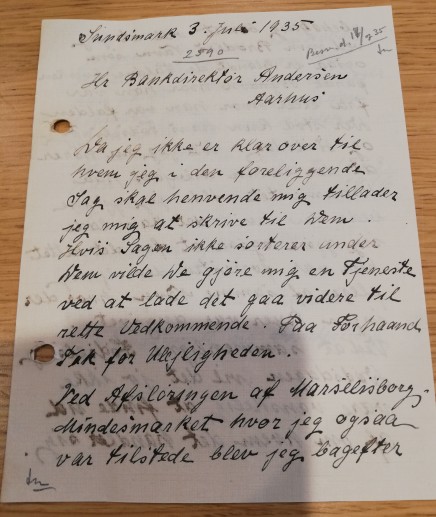 Sundsmark 3. Juli 1935
2590
Hr Bankdirektør Andersen
Aarhus
Da jeg ikke er klar over til
hvem jeg i den foreliggende
Sag skal henvende mig tillader
jeg mig at skrive til Dem.
Hvis Sagen ikke sorterer under
Dem vilde De gjøre mig en Tjeneste
ved at lade det gaa videre til
rette Vedkommende. Paa Forhaand
Tak for Ulejligheden.
Ved Afsløringen af Marselisborg-
Mindesmærket hvor jeg ogsaa
var tilstede blev jeg bagefter